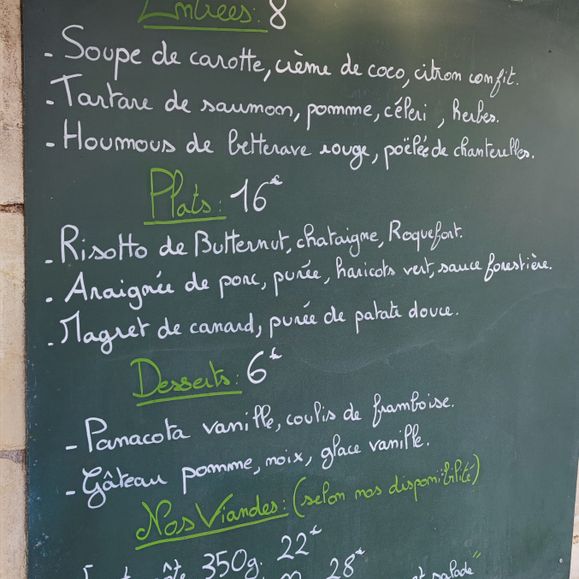 Entrées: 8
- Soupe de carotte, crème de coco, citron confit.
- Tartare de saumon, pomme, céleri, herbes.
- Houmous de betterave rouge, poëlée de chanterelles.
Plats: 16€
- Risotto de Butternut, chataigne, Roquefort.
- Araignée de porc, purée, haricots vert, sauce forestière.
- Magret de canard, purée de patate douce.
Desserts: 6€
- Panacota vanille, coulis de framboise.
- Gâteau pomme, noix, glace vanille.
Nos Viandes: (selon nos disponibilité)
350g. 22€
28€ et salade"